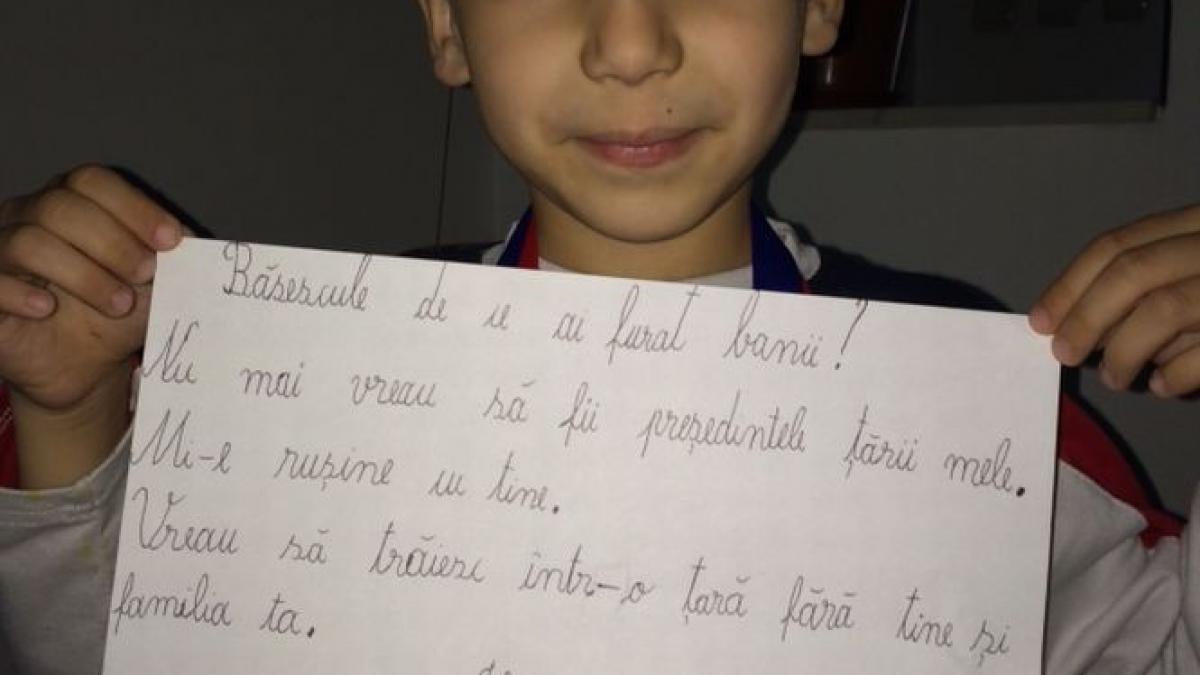 Băsescule de ce ai furat banii?
Nu mai vreau să fii președintele țării mele.
Mi-e rușine cu tine.
Vreau să trăiesc într-o țară fără tine și
familia ta.